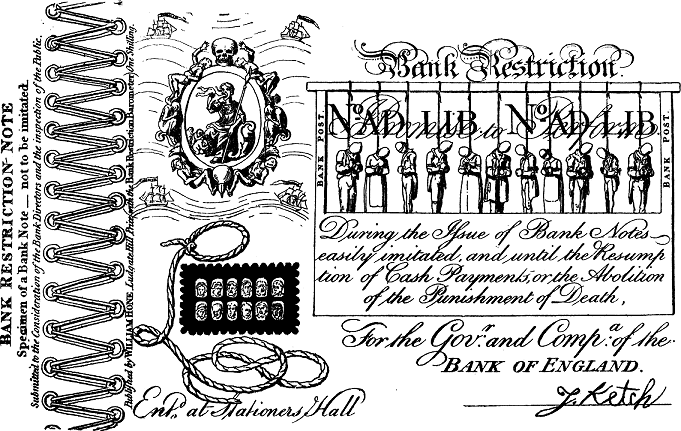 BANK RESTRICTION-NOTE
Specimen of a Bank Note — not to be imitated.
Submitted to the Consideration of the Bank Directors and the inspection of the Public.
Published by WILLIAM HONE, Ludgate Hill. Price with the Bank Restriction Barometer, One Shilling.
Bank Restriction.
BANK POST.
No AD LIB No AD LIB
I Promise to Perform
BANK POST.
During the Issue of Bank Notes
easily imitated, and until the Resump
tion of Cash Payments, or the Abolition
of the Punishment of Death,
For the Govr. and Compa. of the
BANK OF ENGLAND.
J. Ketch
Entd. at Stationers Hall